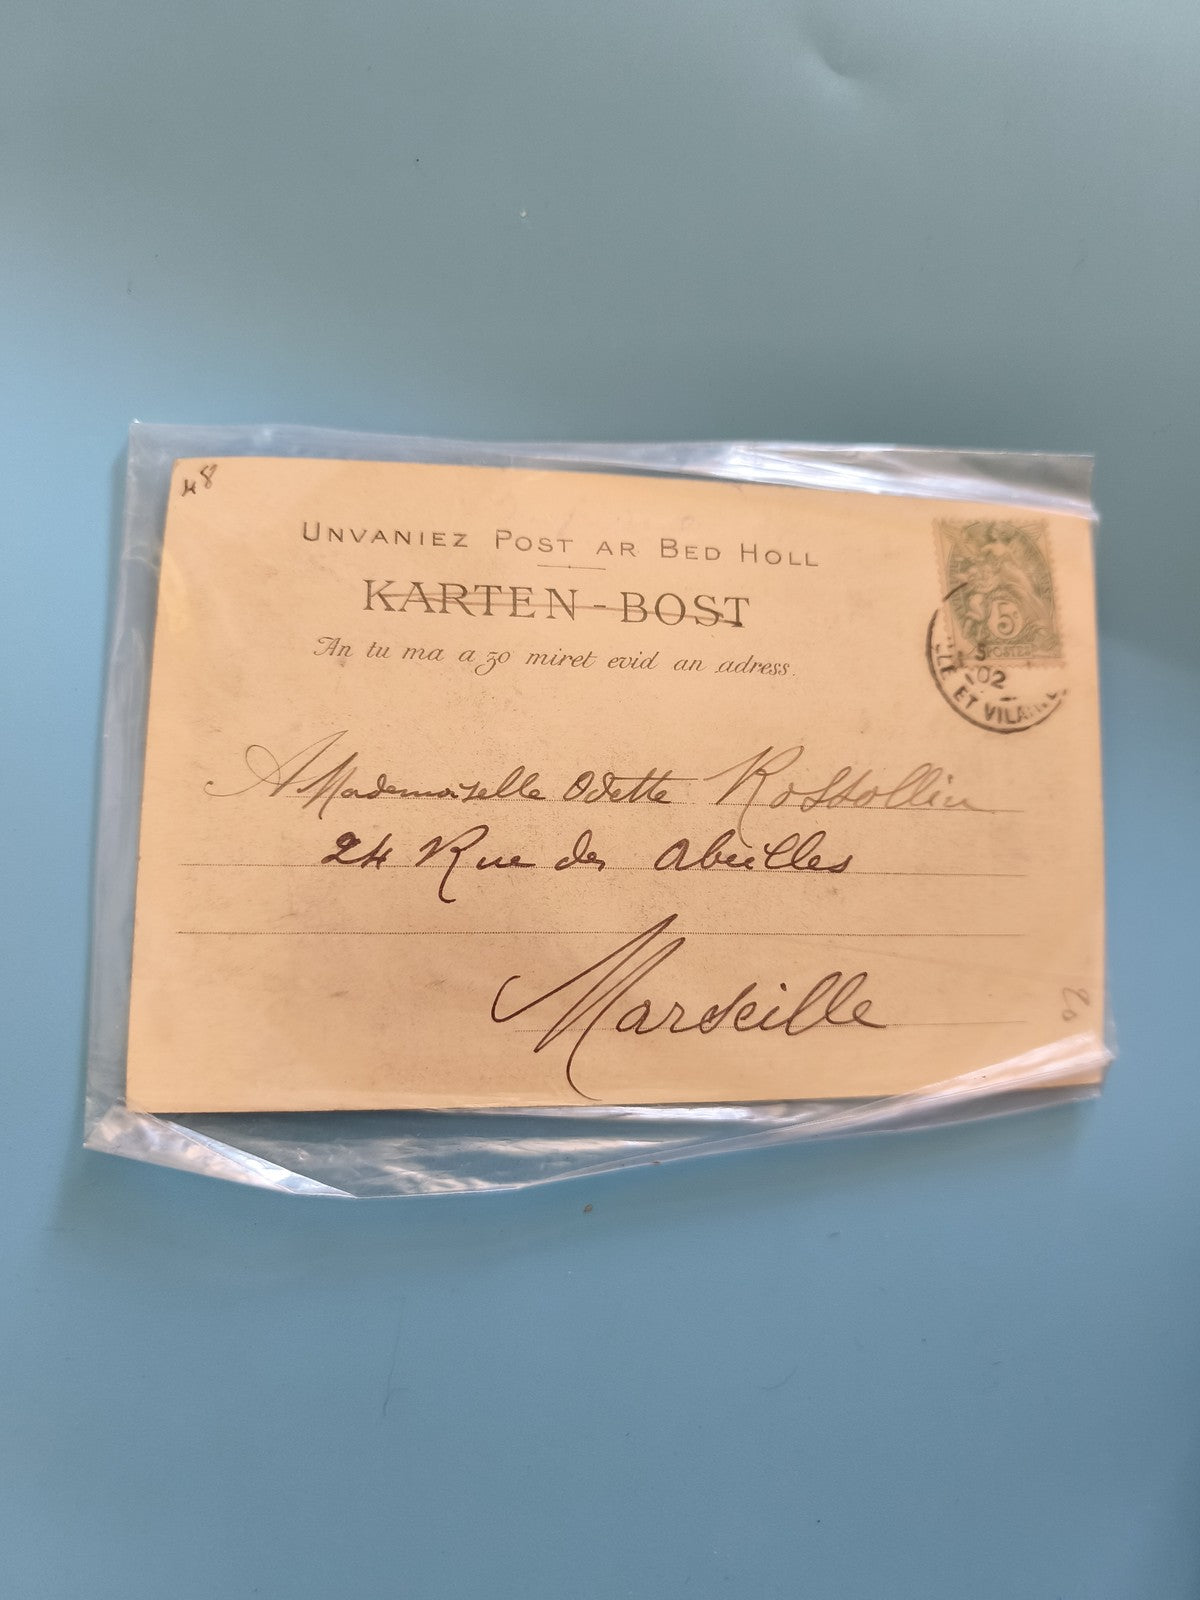 48
UNVANIEZ POST AR BED HOLL
KARTEN-BOST
An tu ma a zo miret evid an adress.
5c
POSTES
5
02
LLE ET VILAINE
A Mademoiselle Odette Rossollin
24 Rue des Abeilles
Marseille
20